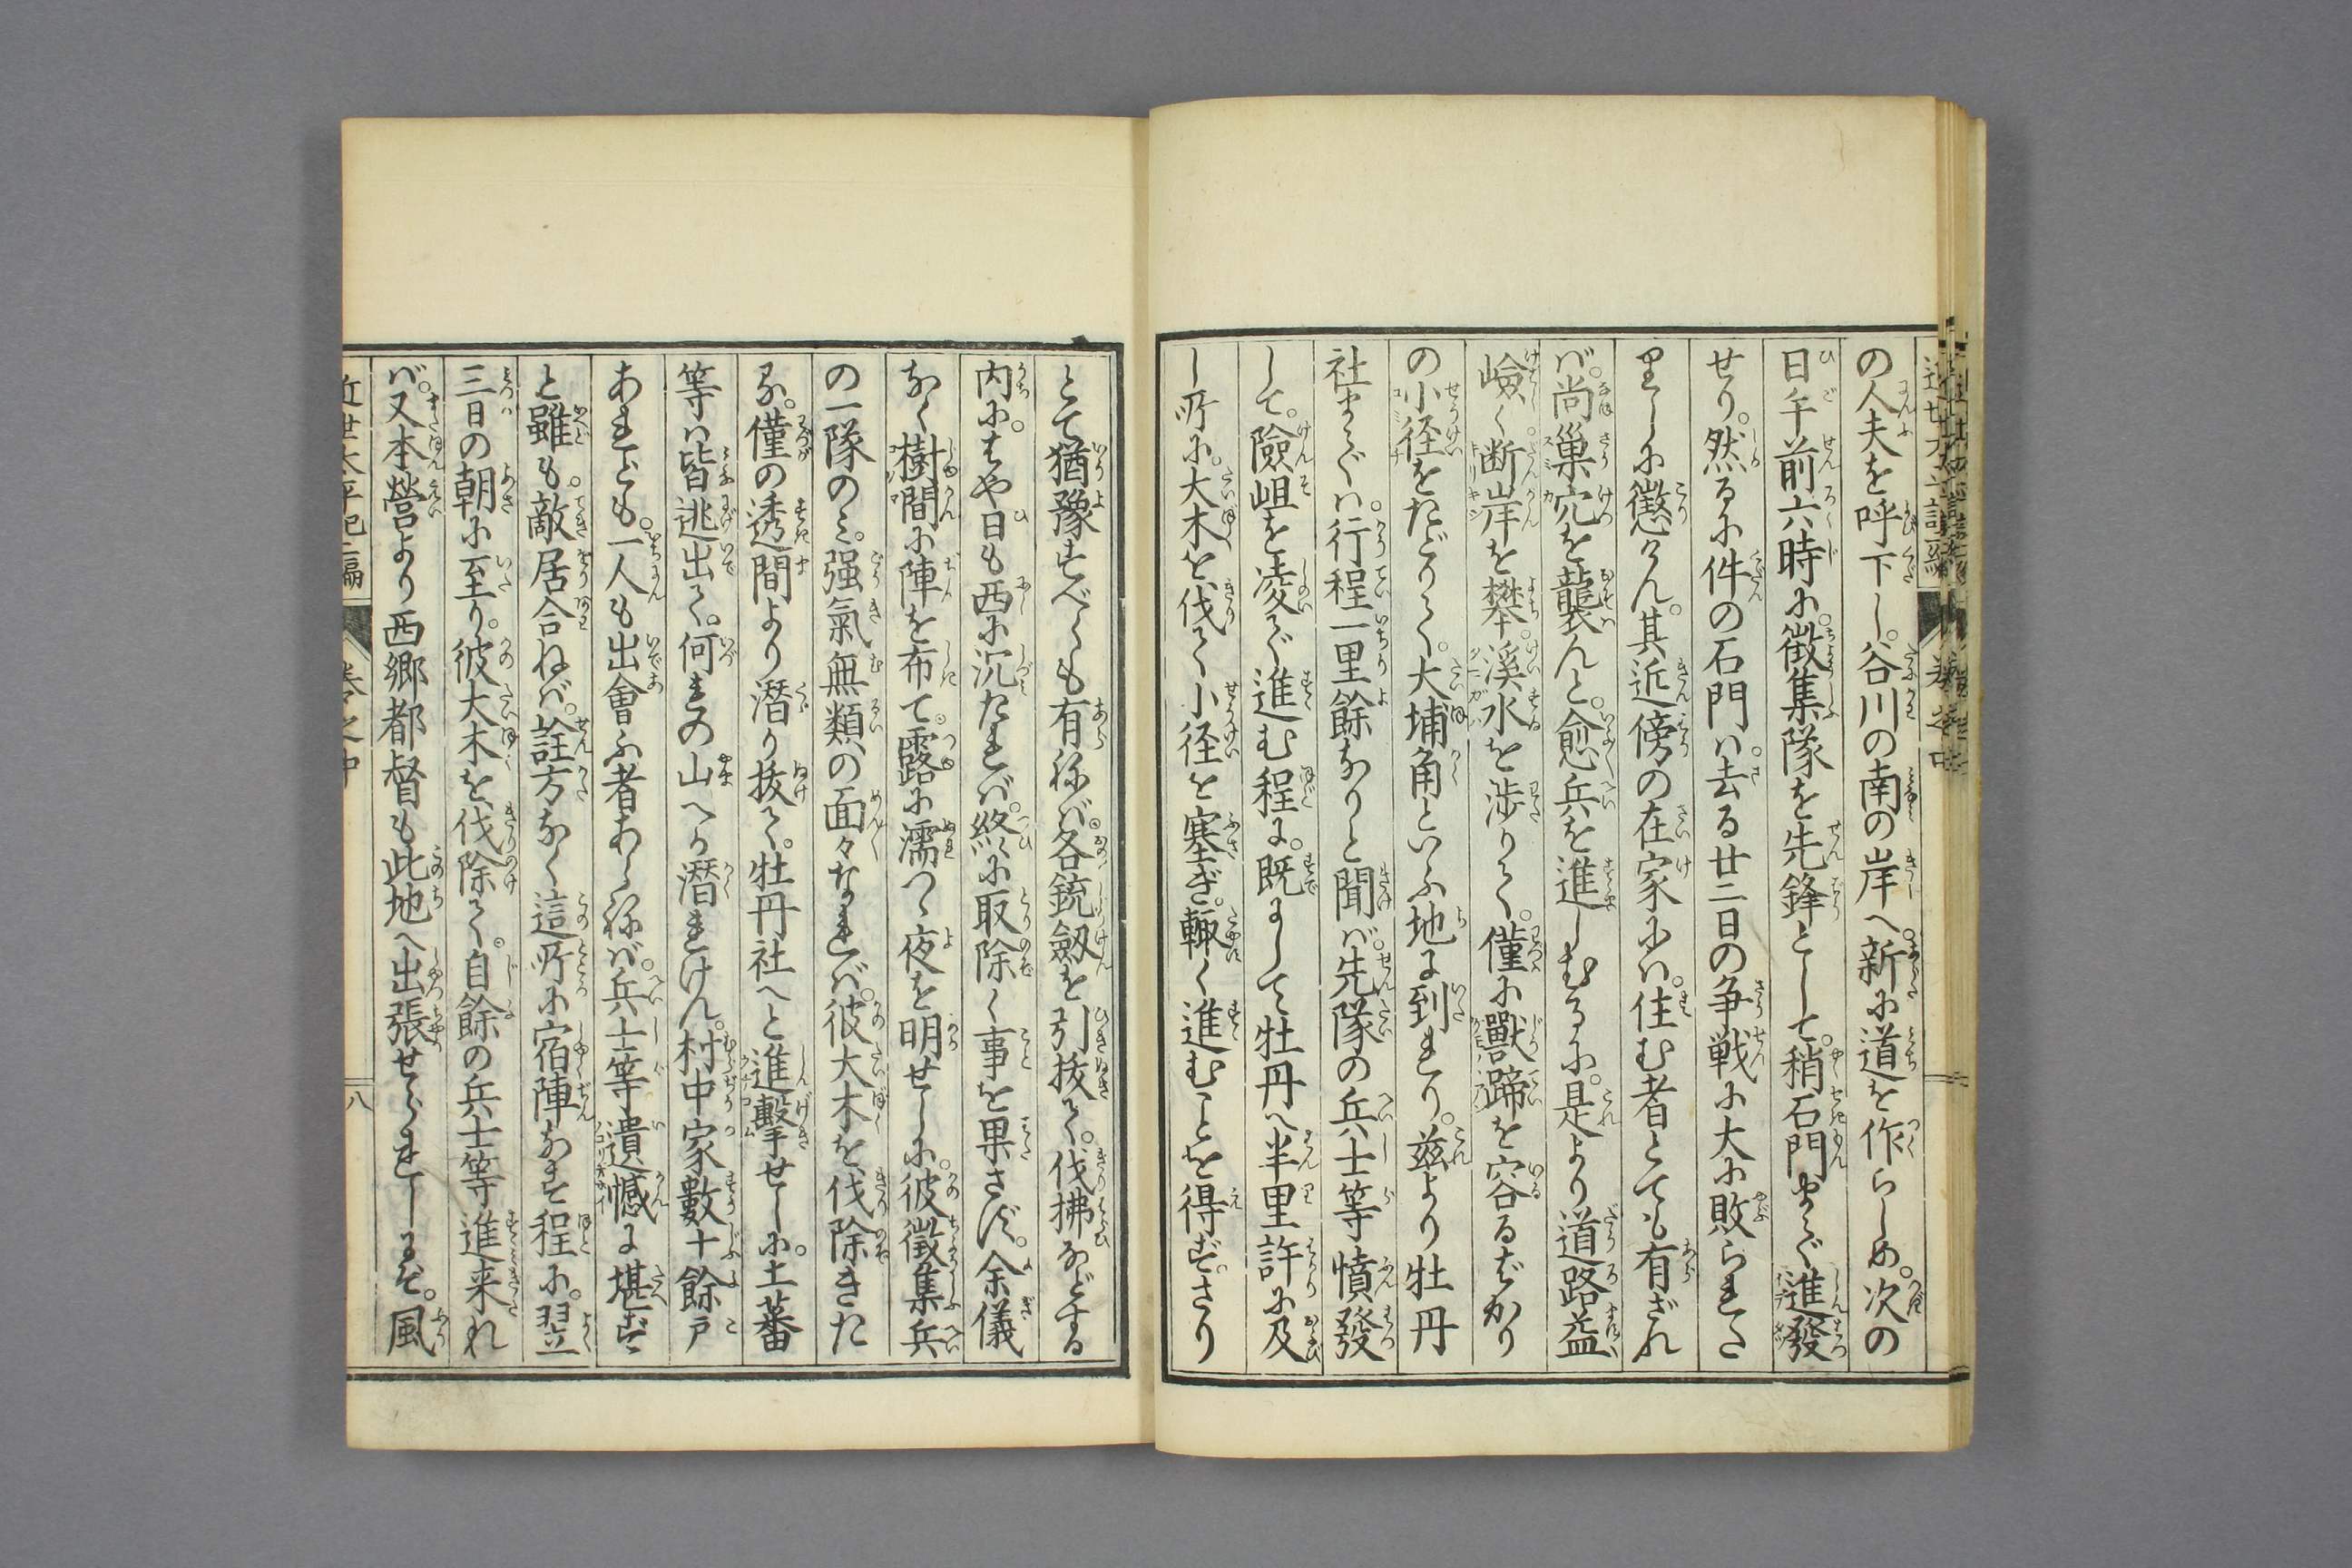 の人夫を呼下し。谷川の南の岸へ。新に道を作らしめ。次の
日午前六時に。徴集隊を先鋒として。稍石門まで進發
せり。然るに件の石門は。去る廿二日の争戦に大に敗られた
りしに懲けん。其近傍の在家には。住む者とても有ざれ
ば。尚巣穴を襲んと。愈兵を進しむるに。是より道路益
嶮く。断岸を攀。渓水を渉りて。僅に獸蹄を容るばかり
の小径をたどりて。大埔角といふ地に到れり。茲より牡丹
社までは。行程一里餘なりと聞ば。先隊の兵士等憤發
して。險岨を凌で進む程に。既にして牡丹へ半里許に及
し所に。大木を伐て小径を塞ぎ。輙く進むことを得ず。さり
とて猶豫すべくも有ねば。各銃劔を引抜て。伐拂などする
内に。はや日も西に沉たれば。終に取除く事を果さず。余儀
なく樹間に陣を布て。露に濡つゝ夜を明せしに。彼徴集兵
の一隊のミ。强氣無類の面々なれば。彼大木を伐除きた
る。僅の透間より潜り抜て。牡丹社へと進擊せしに。土蕃
等は皆逃出て。何れの山へか潜れけん。村中家數十餘戸
あれども。一人も出會ふ者あらねば。兵士等遺憾に堪ず
と雖も。敵居合ねば。詮方なく這所に宿陣なす程に。翌
三日の朝に至り。彼大木を伐除て。自餘の兵士等進来れ
ば。又本營より西郷都督も此地へ出張せられしにぞ。風
近世太平記二編
卷之中
八